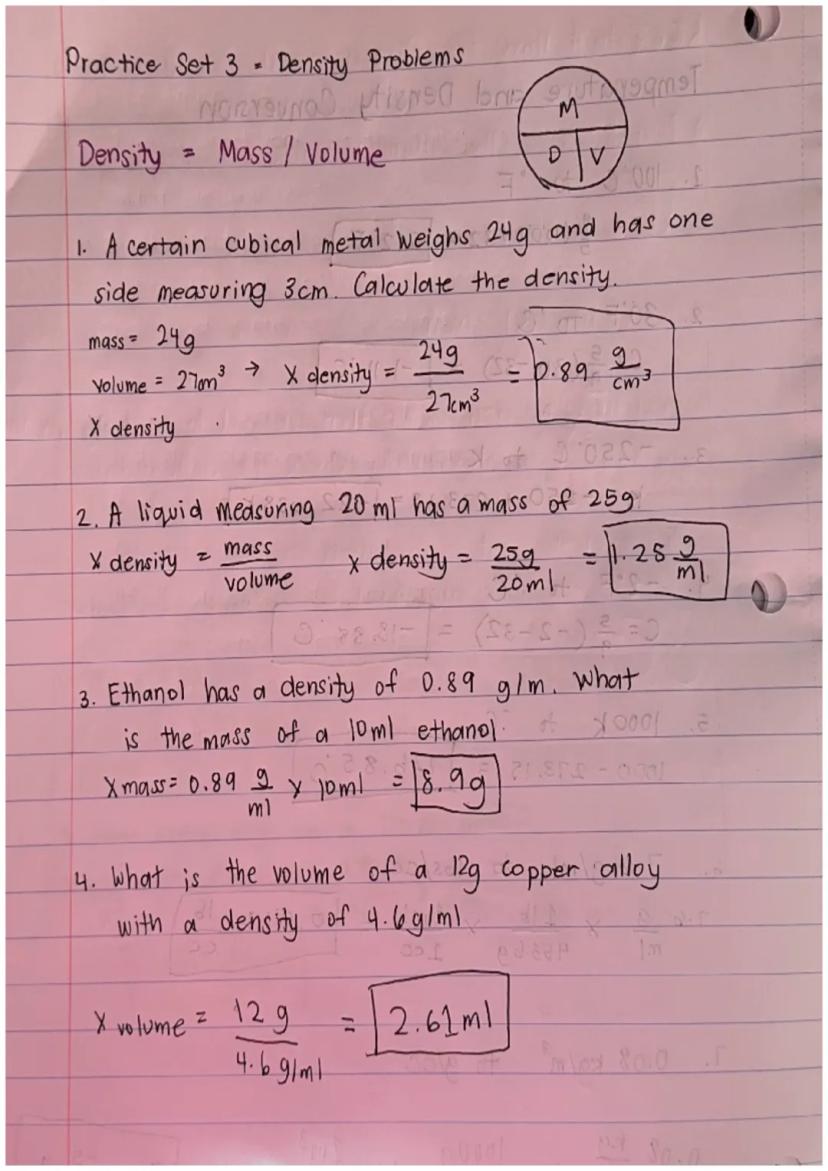 Practice Set 3 - Density Problems
M
D V
Density = Mass / Volume
1. A certain cubical metal weighs 24g and has one
side measuring 3cm. Calculate the density.
mass = 24g
volume = 27cm³ → X density = 24g / 27cm³ = 0.89 g/cm³
X density
2. A liquid measuring 20 ml has a mass of 25g
X density = mass / volume X density = 25g / 20ml = 1.25 g/ml
3. Ethanol has a density of 0.89 g/m. What
is the mass of a 10ml ethanol.
X mass = 0.89 g/ml x 10ml = 8.9g
4. What is the volume of a 12g copper alloy
with a density of 4.6g/ml
X volume = 12g / 4.6 g/ml = 2.61ml